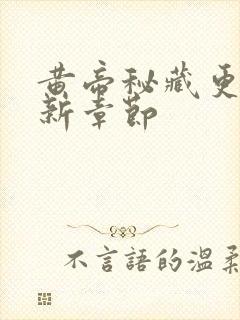 黄帝秘藏更
新章節
不言語的溫柔